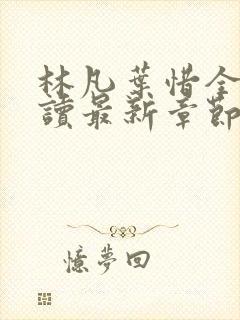 林凡葉惜全
讀最新章節
憶夢回